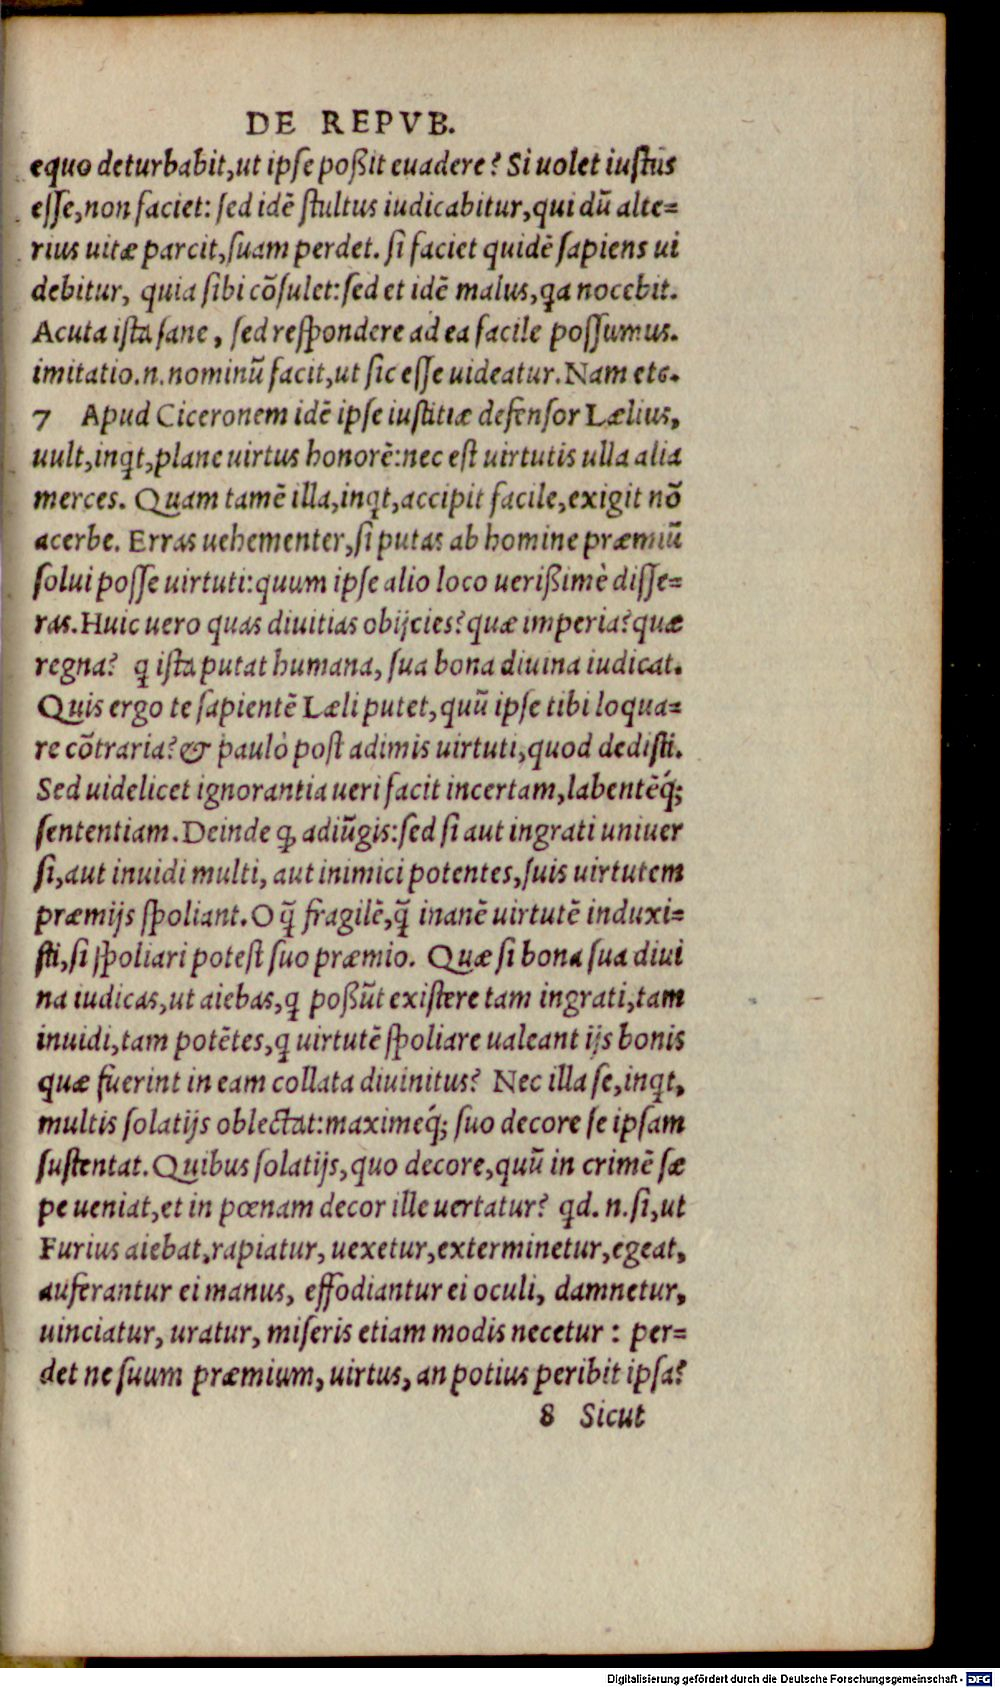 DE REPVB.
equo deturbabit,ut ipse poßit euadere? Si uolet iustus
esse,non faciet: sed idē stultus iudicabitur,qui dū alte=
rius uitæ parcit,suam perdet. si faciet quidē sapiens ui
debitur, quia sibi cōsulet:sed et idē malus,qa nocebit.
Acuta ista sane, sed respondere ad ea facile possumus.
imitatio.n.nominū facit,ut sic esse uideatur.Nam etc.
7 Apud Ciceronem idē ipse iustitiæ defensor Lælius,
uult,inqt,plane uirtus honorē:nec est uirtutis ulla alia
merces. Quam tamē illa,inqt,accipit facile,exigit nō
acerbe. Erras uehementer,si putas ab homine præmiū
solui posse uirtuti:quum ipse alio loco uerißimè disse=
ras.Huic uero quas diuitias obijcies?quæ imperia?quæ
regna? ꝗ ista putat humana, sua bona diuina iudicat.
Quis ergo te sapientē Læli putet,quū ipse tibi loqua=
re cōtraria?& paulò post adimis uirtuti,quod dedisti.
Sed uidelicet ignorantia ueri facit incertam,labentēq́;
sententiam.Deinde ꝙ adiūgis:sed si aut ingrati uniuer
si,aut inuidi multi, aut inimici potentes,suis uirtutem
præmijs spoliant.O q̄ fragilē,q̄ inanē uirtutē induxi=
sti,si spoliari potest suo præmio. Quæ si bona sua diui
na iudicas,ut aiebas,ꝗ poßūt existere tam ingrati,tam
inuidi,tam potētes,ꝗ uirtutē spoliare ualeant ijs bonis
quæ fuerint in eam collata diuinitus? Nec illa se,inqt,
multis solatijs oblectat:maximeq́; suo decore se ipsam
sustentat.Quibus solatijs,quo decore,quū in crimē sæ
pe ueniat,et in pœnam decor ille uertatur? qd. n.si,ut
Furius aiebat,rapiatur, uexetur,exterminetur,egeat,
auferantur ei manus, effodiantur ei oculi, damnetur,
uinciatur, uratur, miseris etiam modis necetur : per=
det ne suum præmium, uirtus, an potius peribit ipsa?
8 Sicut
Digitalisierung gefördert durch die Deutsche Forschungsgemeinschaft - DFG